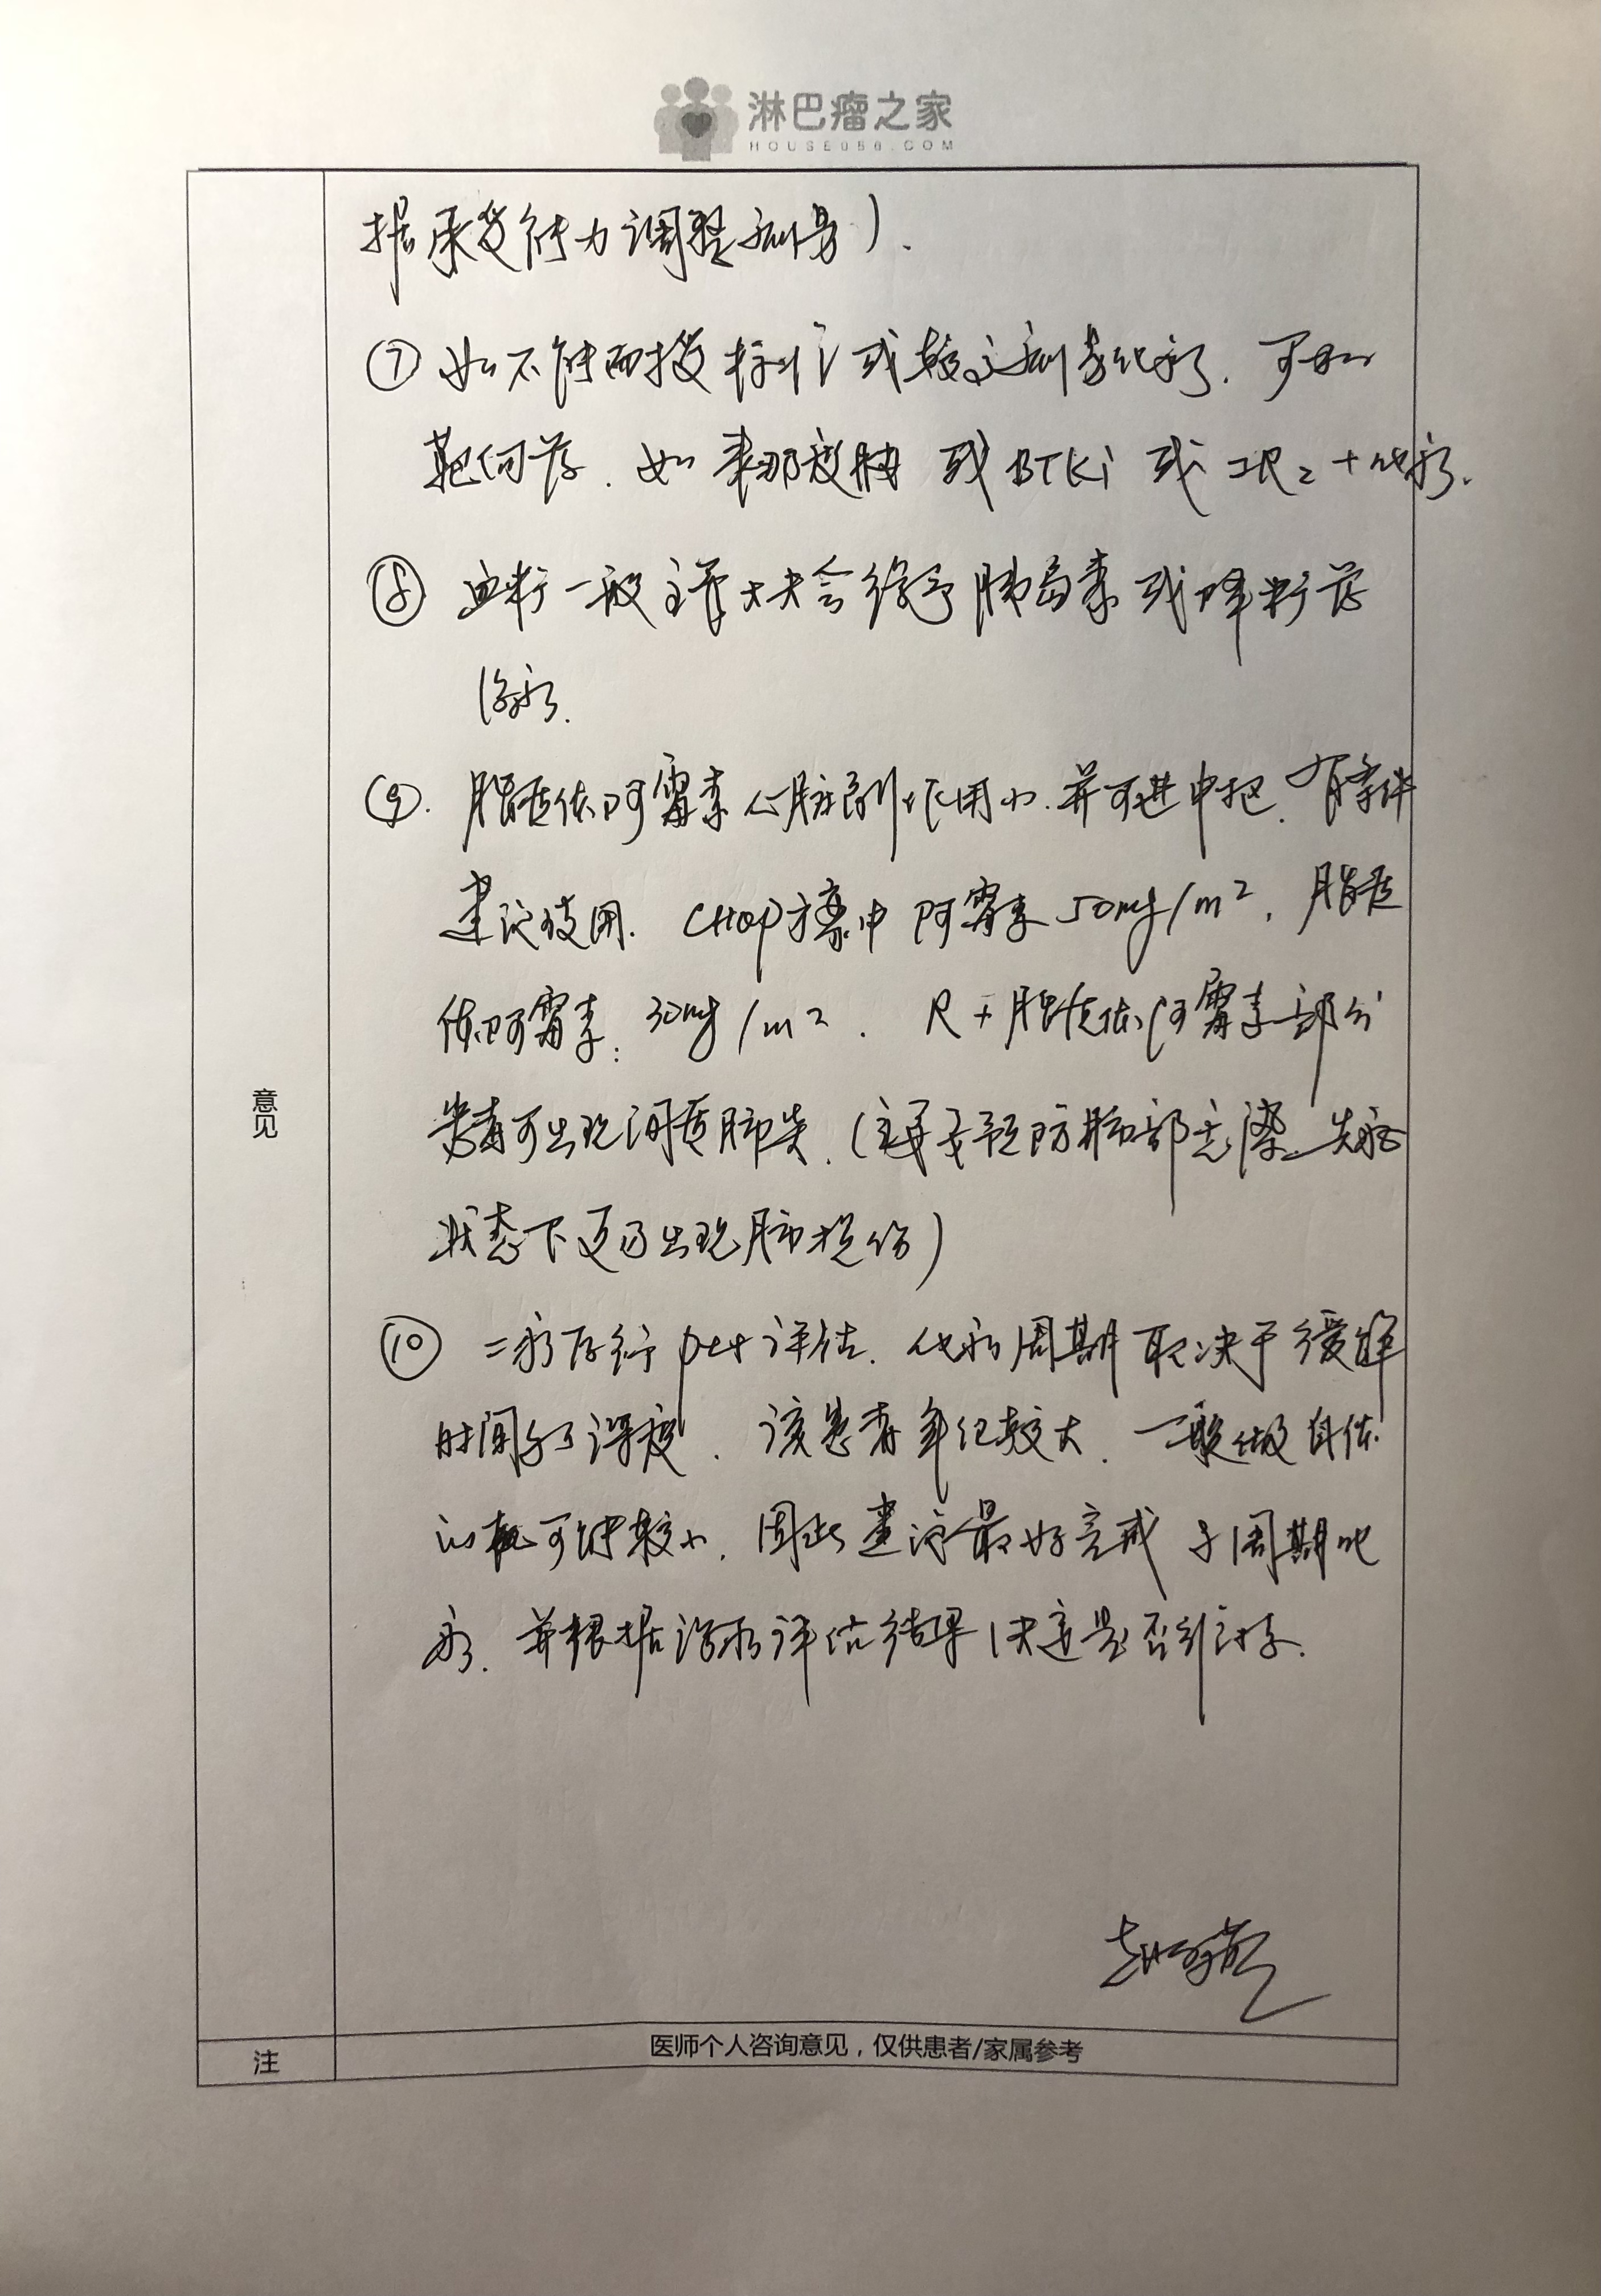 淋巴瘤之家
HOUSE086.COM
据承受能力调整剂量）.
⑦ 如不能耐受标准或较高剂量化疗. 可加
靶向药. 如来那度胺 或 BTKi 或 2R2 + 化疗.
⑧ 血糖一般主管大夫会给予胰岛素或降糖药
治疗.
⑨. 脂质体阿霉素心脏副作用小. 并可进中枢. 有条件
建议使用. CHOP方案中 阿霉素 50mg/m². 脂质
体阿霉素: 30mg/m². R+脂质体阿霉素部分
患者可出现间质肺炎. (注意预防肺部感染. 免疫
状态下更易出现肺损伤)
⑩ 二疗后行 pet 评估. 化疗周期取决于缓解
时间和深度. 该患者年纪较大. 一般做自体
的可能较小. 因此建议最好完成 周期化
疗. 并根据治疗评估结果决定是否维持.
意见
注
医师个人咨询意见，仅供患者/家属参考